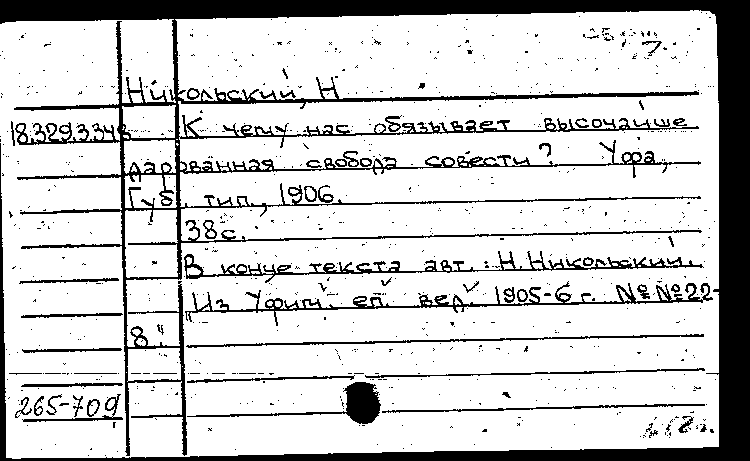 Никольский, Н
18.329.3.348 К чему нас обязывает высочайше
дарованная свобода совести? Уфа,
Губ. тип., 1906.
38с.
В конце текста авт.: Н. Никольский.
„Из Уфим. еп. вед. 1905-6 г. №№22-
8"
265-709